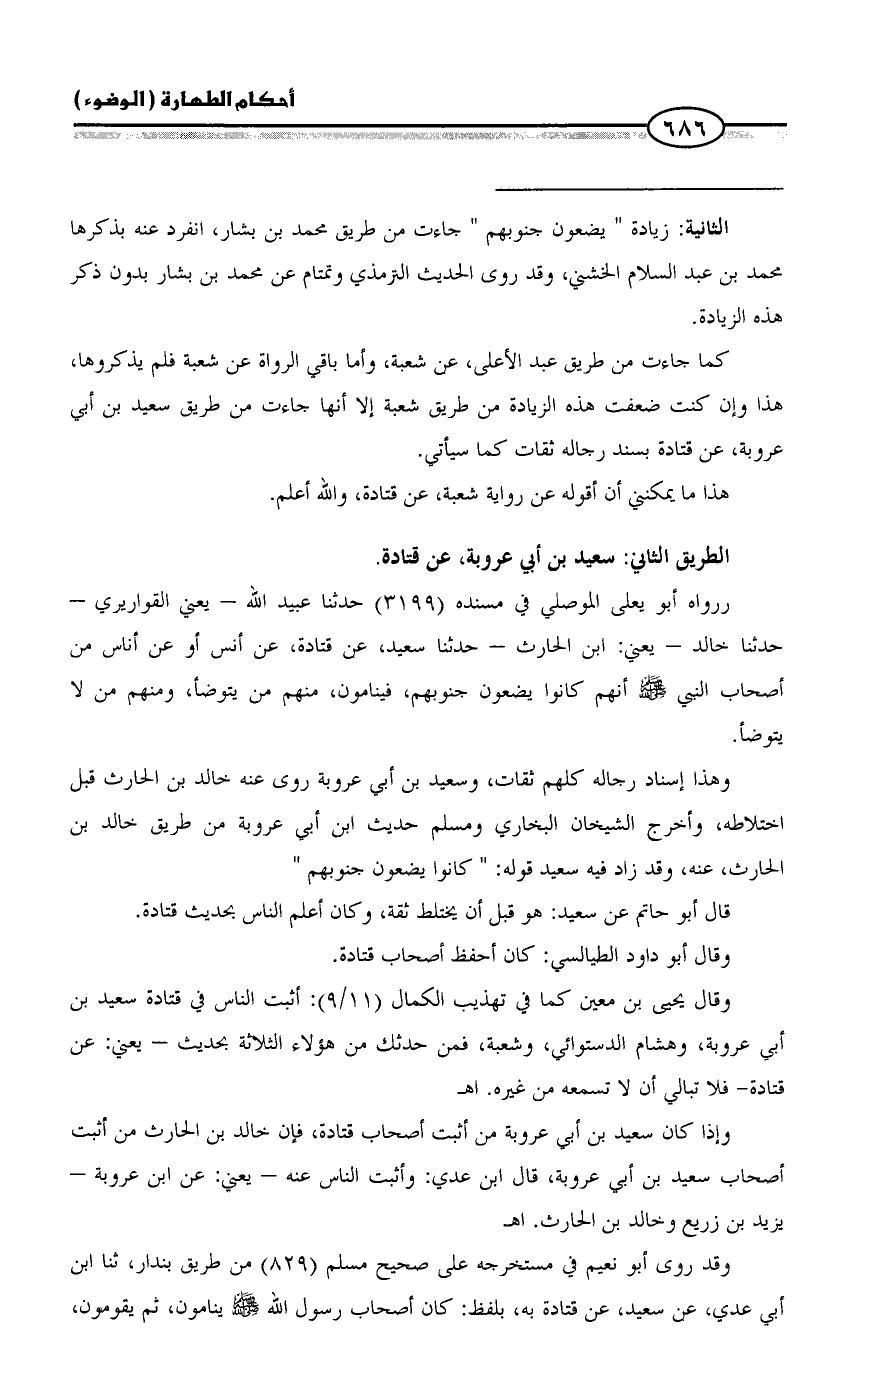 أحكام الطهارة (الوضوء)
٦٨٦
الثانية: زيادة " يضعون جنوبهم " جاءت من طريق محمد بن بشار، انفرد عنه بذكرها
محمد بن عبد السلام الخشني، وقد روى الحديث الترمذي وتمتام عن محمد بن بشار بدون ذكر
هذه الزيادة.
كما جاءت من طريق عبد الأعلى، عن شعبة، وأما باقي الرواة عن شعبة فلم يذكروها،
هذا وإن كنت ضعفت هذه الزيادة من طريق شعبة إلا أنها جاءت من طريق سعيد بن أبي
عروبة، عن قتادة بسند رجاله ثقات كما سيأتي.
هذا ما يمكنني أن أقوله عن رواية شعبة، عن قتادة، والله أعلم.
الطريق الثاني: سعيد بن أبي عروبة، عن قتادة.
ررواه أبو يعلى الموصلي في مسنده (٣١٩٩) حدثنا عبيد الله – يعني القواريري –
حدثنا خالد – يعني: ابن الحارث – حدثنا سعيد، عن قتادة، عن أنس أو عن أناس من
أصحاب النبي ﷺ أنهم كانوا يضعون جنوبهم، فينامون، منهم من يتوضأ، ومنهم من لا
يتوضأ.
وهذا إسناد رجاله كلهم ثقات، وسعيد بن أبي عروبة روى عنه خالد بن الحارث قبل
اختلاطه، وأخرج الشيخان البخاري ومسلم حديث ابن أبي عروبة من طريق خالد بن
الحارث، عنه، وقد زاد فيه سعيد قوله: " كانوا يضعون جنوبهم "
قال أبو حاتم عن سعيد: هو قبل أن يختلط ثقة، وكان أعلم الناس بحديث قتادة.
وقال أبو داود الطيالسي: كان أحفظ أصحاب قتادة.
وقال يحيى بن معين كما في تهذيب الكمال (٩/١١): أثبت الناس في قتادة سعيد بن
أبي عروبة، وهشام الدستوائي، وشعبة، فمن حدثك من هؤلاء الثلاثة بحديث – يعني: عن
قتادة– فلا تبالي أن لا تسمعه من غيره. اهـ
وإذا كان سعيد بن أبي عروبة من أثبت أصحاب قتادة، فإن خالد بن الحارث من أثبت
أصحاب سعيد بن أبي عروبة، قال ابن عدي: وأثبت الناس عنه – يعني: عن ابن عروبة –
يزيد بن زريع وخالد بن الحارث. اهـ
وقد روى أبو نعيم في مستخرجه على صحيح مسلم (٨٢٩) من طريق بندار، ثنا ابن
أبي عدي، عن سعيد، عن قتادة به، بلفظ: كان أصحاب رسول الله ﷺ ينامون، ثم يقومون،